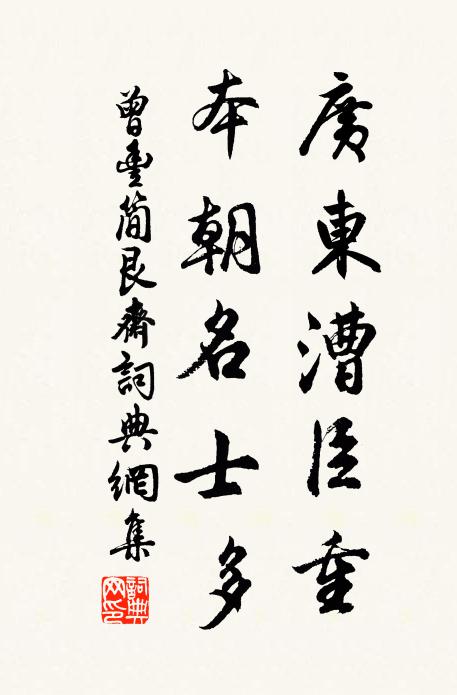 廣東漕臣重
本朝名士多
曾豐簡艮齋詞典網集
詞典網印